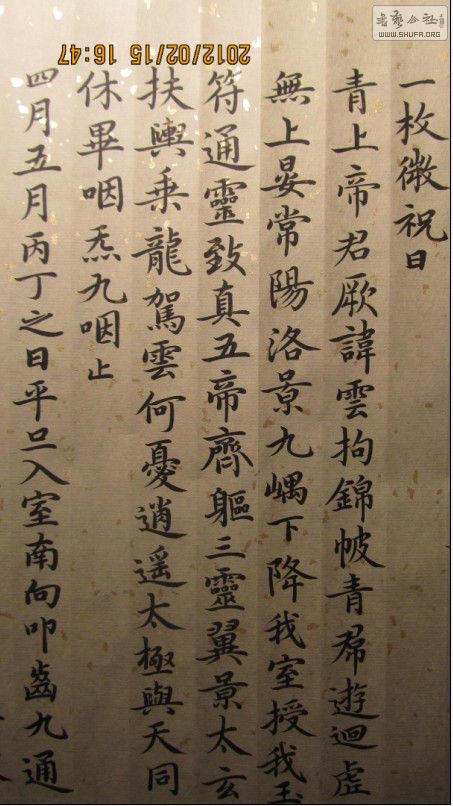 一枚微祝曰
青上帝君厥諱雲拘錦帔青帬遊迴虛
無上晏常陽洛景九嵎下降我室授我玉
符通靈致真五帝齊軀三靈翼景太玄
扶輿乗龍駕雲何憂逍遥太極與天同
休畢咽炁九咽止
四月五月丙丁之日平旦入室南向叩齒九通
2012/02/15 16:47
書藝公社
WWW.SHUFA.ORG